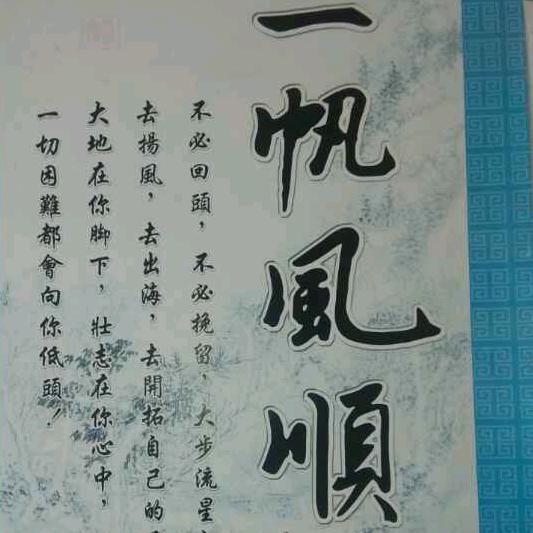 一帆風順
不必回頭，不必挽留，大步流星
去揚風，去出海，去開拓自己的
大地在你脚下，壯志在你心中，
一切困難都會向你低頭！